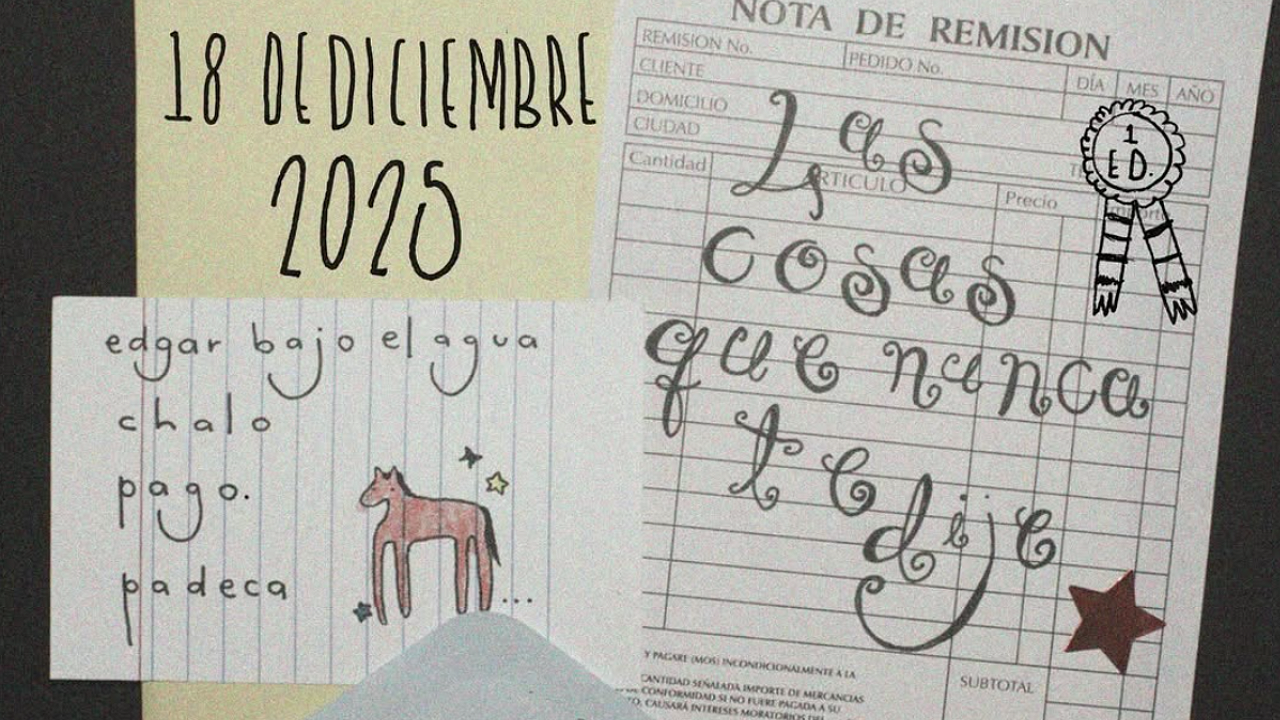 18 DE DICIEMBRE
2025
edgar bajo el agua
chalo
pago.
padeca
...
NOTA DE REMISION
REMISION No.
PEDIDO No.
DÍA MES AÑO
CLIENTE
DOMICILIO
CIUDAD
Cantidad
ARTICULO
Precio
1
ED.
Las
cosas
que nunca
te dije
Y PAGARE (MOS) INCONDICIONALMENTE A LA
CANTIDAD SEÑALADA IMPORTE DE MERCANCIAS
CONFORMIDAD SI NO FUERE PAGADA A SU
CAUSARÁ INTERESES MORATORIOS DEL
SUBTOTAL